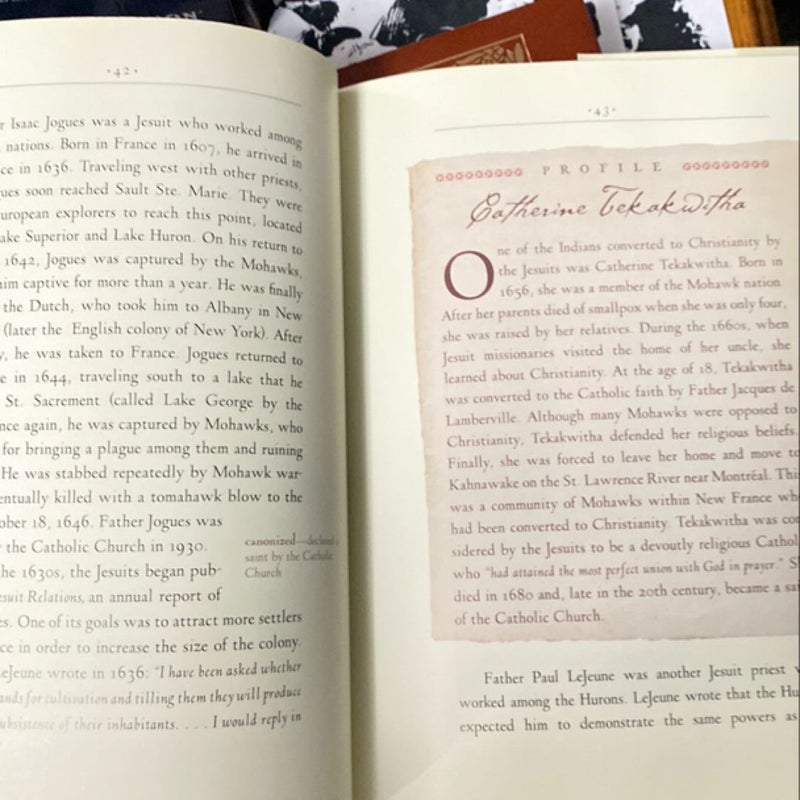 ·42·
r Isaac Jogues was a Jesuit who worked among
nations. Born in France in 1607, he arrived in
ce in 1636. Traveling west with other priests,
ues soon reached Sault Ste. Marie. They were
uropean explorers to reach this point, located
ake Superior and Lake Huron. On his return to
1642, Jogues was captured by the Mohawks,
him captive for more than a year. He was finally
the Dutch, who took him to Albany in New
(later the English colony of New York). After
y, he was taken to France. Jogues returned to
e in 1644, traveling south to a lake that he
St. Sacrement (called Lake George by the
nce again, he was captured by Mohawks, who
for bringing a plague among them and ruining
He was stabbed repeatedly by Mohawk war-
entually killed with a tomahawk blow to the
ober 18, 1646. Father Jogues was
the Catholic Church in 1930.
he 1630s, the Jesuits began pub-
esuit Relations, an annual report of
es. One of its goals was to attract more settlers
ce in order to increase the size of the colony.
LeJeune wrote in 1636: "I have been asked whether
ands for cultivation and tilling them they will produce
ubsistence of their inhabitants. . . . I would reply in
canonized—declared
saint by the Catholic
Church
·43·
PROFILE
Catherine Tekakwitha
One of the Indians converted to Christianity by
the Jesuits was Catherine Tekakwitha. Born in
1656, she was a member of the Mohawk nation.
After her parents died of smallpox when she was only four,
she was raised by her relatives. During the 1660s, when
Jesuit missionaries visited the home of her uncle, she
learned about Christianity. At the age of 18, Tekakwitha
was converted to the Catholic faith by Father Jacques de
Lamberville. Although many Mohawks were opposed to
Christianity, Tekakwitha defended her religious beliefs.
Finally, she was forced to leave her home and move to
Kahnawake on the St. Lawrence River near Montréal. This
was a community of Mohawks within New France wh
had been converted to Christianity. Tekakwitha was con
sidered by the Jesuits to be a devoutly religious Cathol
who "had attained the most perfect union with God in prayer." S
died in 1680 and, late in the 20th century, became a sa
of the Catholic Church.
Father Paul LeJeune was another Jesuit priest
worked among the Hurons. LeJeune wrote that the Hu
expected him to demonstrate the same powers as